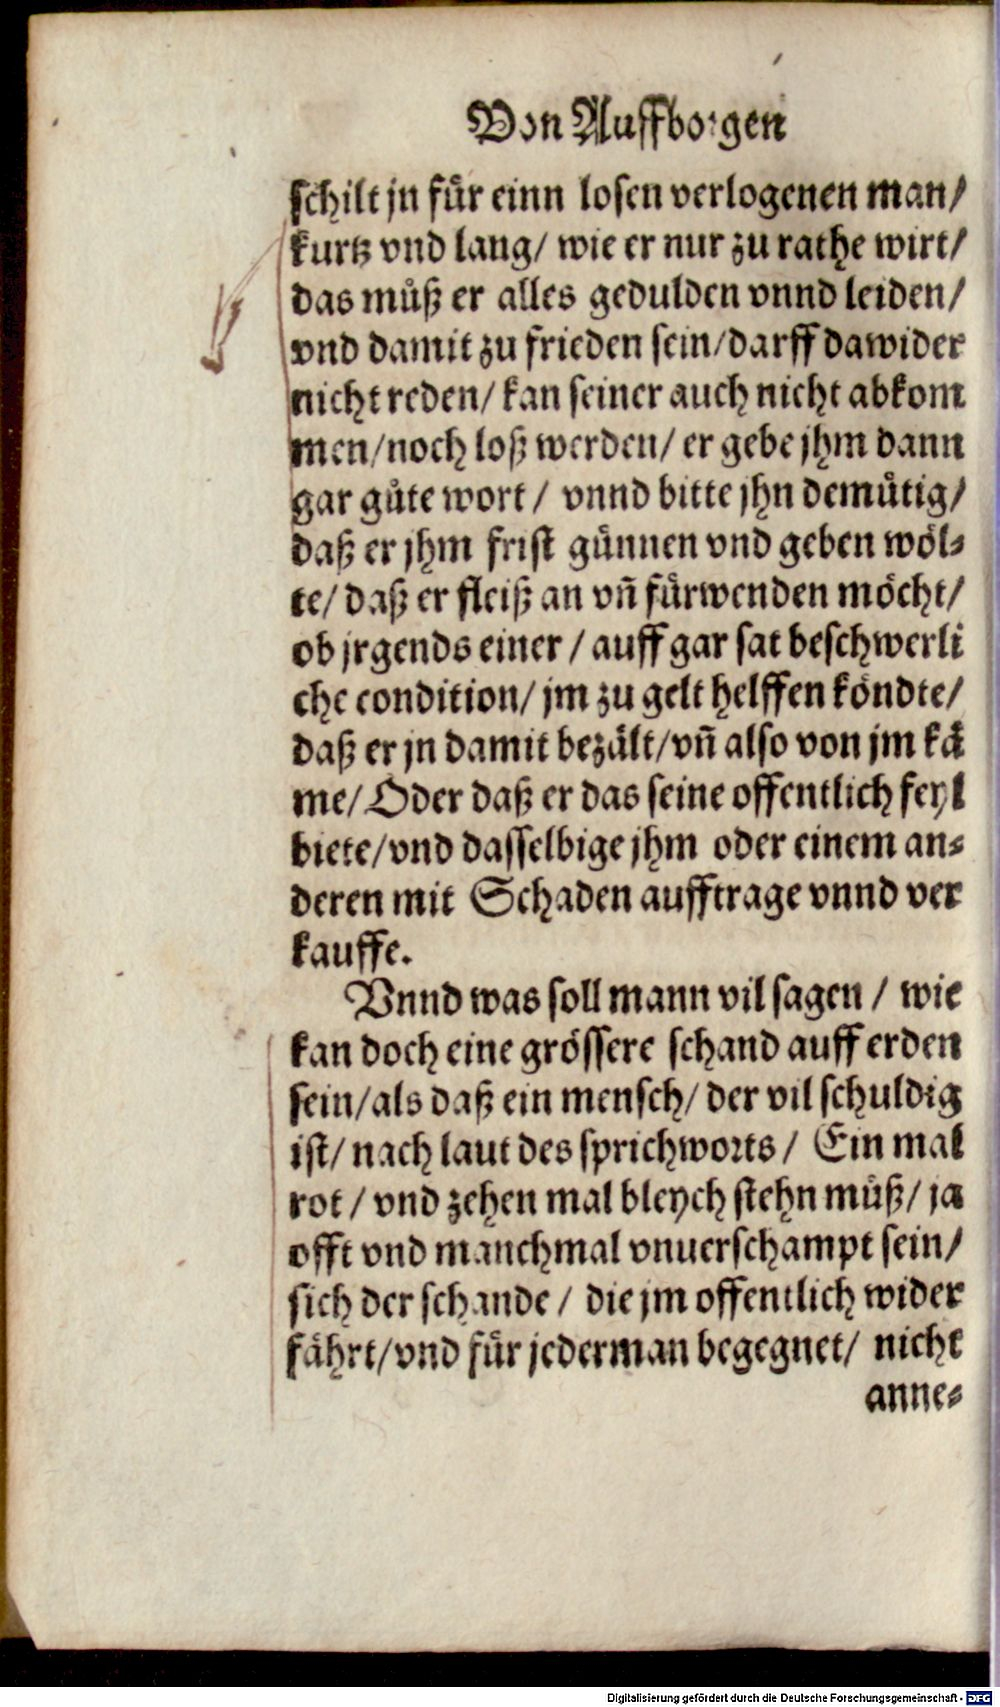 Von Auffborgen
schilt jn für einn losen verlogenen man/
kurtz vnd lang/ wie er nur zu rathe wirt/
das můß er alles gedulden vnnd leiden/
vnd damit zu frieden sein/darff dawider
nicht reden/ kan seiner auch nicht abkom
men/noch loß werden/ er gebe jhm dann
gar gůte wort / vnnd bitte jhn demütig/
daß er jhm frist günnen vnd geben wöl-
te/ daß er fleiß an vn̄ fürwenden möcht/
ob jrgends einer / auff gar sat beschwerli
che condition/ jm zu gelt helffen köndte/
daß er jn damit bezält/vn̄ also von jm kä
me/ Oder daß er das seine offentlich feyl
biete/vnd dasselbige jhm oder einem an-
deren mit Schaden aufftrage vnnd ver
kauffe.
Vnnd was soll mann vil sagen / wie
kan doch eine grössere schand auff erden
sein/als daß ein mensch/ der vil schuldig
ist/ nach laut des sprichworts / Ein mal
rot / vnd zehen mal bleych stehn můß/ ja
offt vnd manchmal vnuerschampt sein/
sich der schande / die jm offentlich wider
fährt/vnd für jederman begegnet/ nicht
anne-
Digitalisierung gefördert durch die Deutsche Forschungsgemeinschaft - DFG